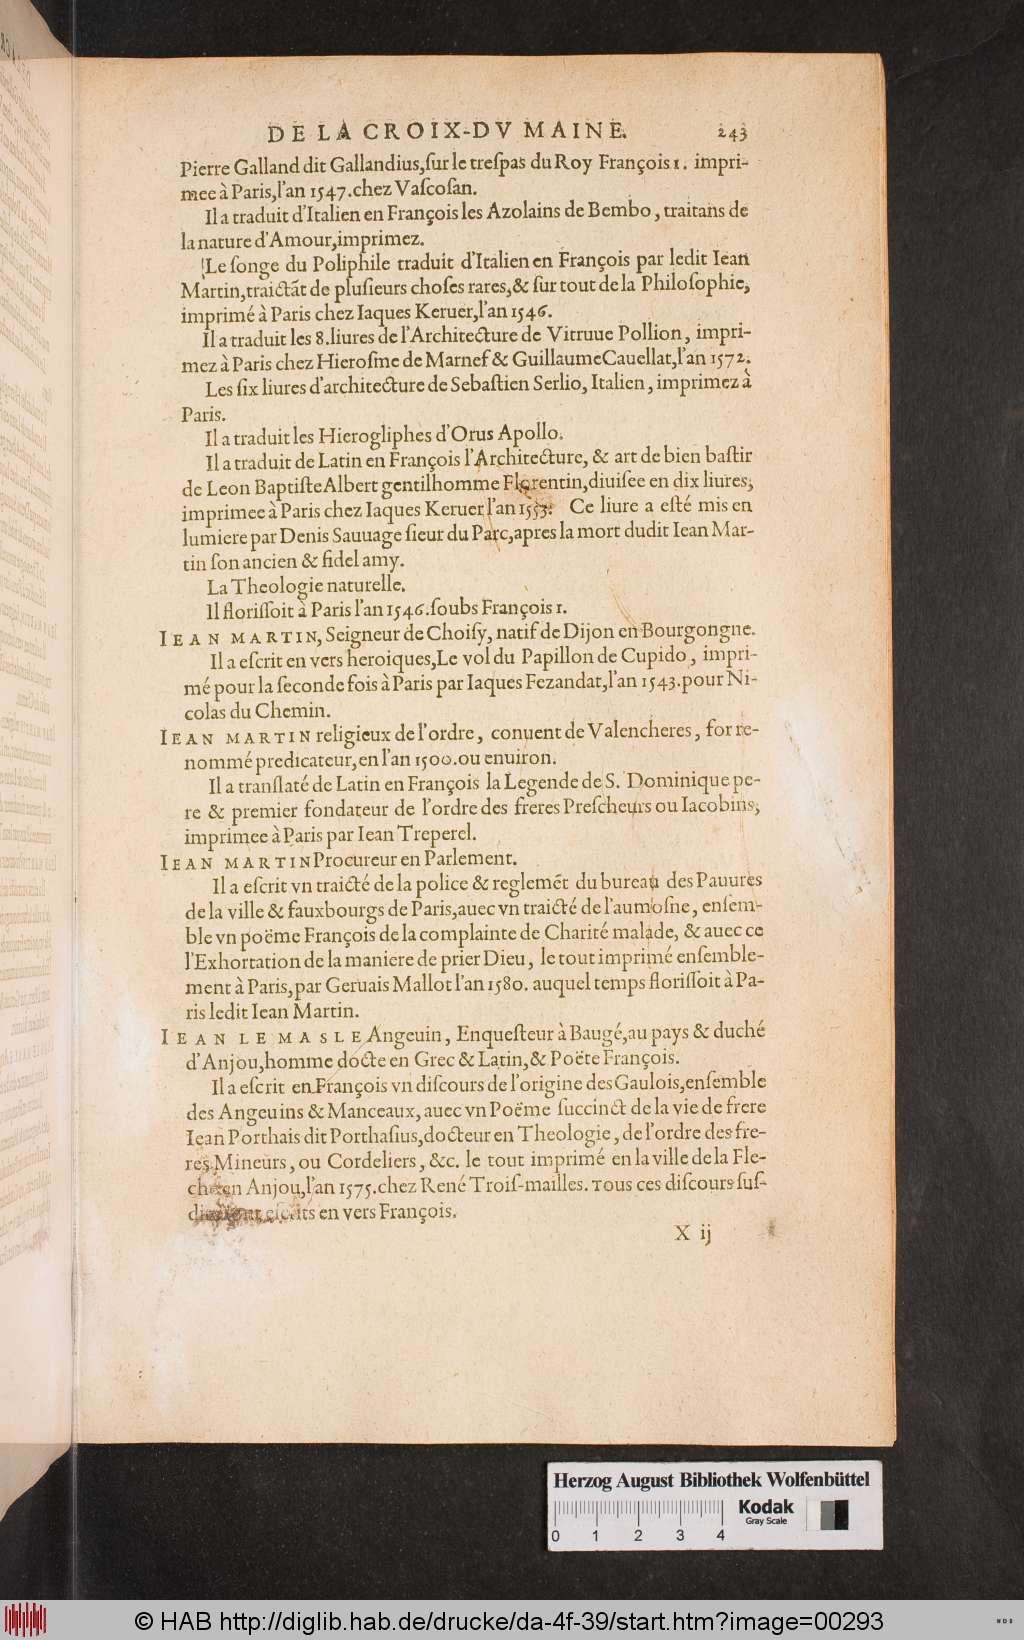 DE LA CROIX-DV MAINE. 243
Pierre Galland dit Gallandius,ſur le treſpas du Roy François 1. impri-
mee à Paris,l'an 1547.chez Vaſcoſan.
Il a traduit d'Italien en François les Azolains de Bembo, traitans de
la nature d'Amour,imprimez.
Le ſonge du Poliphile traduit d'Italien en François par ledit Iean
Martin,traictãt de pluſieurs choſes rares,& ſur tout de la Philoſophie,
imprimé à Paris chez Iaques Keruer,l'an 1546.
Il a traduit les 8.liures de l'Architecture de Vitruue Pollion, impri-
mez à Paris chez Hieroſme de Marnef & Guillaume Cauellat,l'an 1572.
Les ſix liures d'architecture de Sebaſtien Serlio, Italien, imprimez à
Paris.
Il a traduit les Hierogliphes d'Orus Apollo.
Il a traduit de Latin en François l'Architecture, & art de bien baſtir
de Leon Baptiſte Albert gentilhomme Florentin,diuiſee en dix liures,
imprimee à Paris chez Iaques Keruer l'an 1553. Ce liure a eſté mis en
lumiere par Denis Sauuage ſieur du Parc,apres la mort dudit Iean Mar-
tin ſon ancien & fidel amy.
La Theologie naturelle.
Il floriſſoit à Paris l'an 1546.ſoubs François 1.
IEAN MARTIN, Seigneur de Choiſy, natif de Dijon en Bourgongne.
Il a eſcrit en vers heroiques,Le vol du Papillon de Cupido, impri-
mé pour la ſeconde fois à Paris par Iaques Fezandat,l'an 1543.pour Ni-
colas du Chemin.
IEAN MARTIN religieux de l'ordre, conuent de Valencheres, for re-
nommé predicateur,en l'an 1500.ou enuiron.
Il a tranſlaté de Latin en François la Legende de S. Dominique pe-
re & premier fondateur de l'ordre des freres Preſcheurs ou Iacobins,
imprimee à Paris par Iean Treperel.
IEAN MARTIN Procureur en Parlement.
Il a eſcrit vn traicté de la police & reglemẽt du bureau des Pauures
de la ville & fauxbourgs de Paris,auec vn traicté de l'aumoſne, enſem-
ble vn poëme François de la complainte de Charité malade, & auec ce
l'Exhortation de la maniere de prier Dieu, le tout imprimé enſemble-
ment à Paris,par Geruais Mallot l'an 1580. auquel temps floriſſoit à Pa-
ris ledit Iean Martin.
IEAN LE MASLE Angeuin, Enqueſteur à Baugé,au pays & duché
d'Anjou,homme docte en Grec & Latin,& Poëte François.
Il a eſcrit en François vn diſcours de l'origine des Gaulois,enſemble
des Angeuins & Manceaux, auec vn Poëme ſuccinct de la vie de frere
Iean Porthais dit Porthaſius,docteur en Theologie, de l'ordre des fre-
res Mineurs, ou Cordeliers, &c. le tout imprimé en la ville de la Fle-
che en Anjou,l'an 1575.chez René Troiſ-mailles. Tous ces diſcours ſuſ-
eſcrits en vers François.
X ij
Herzog August Bibliothek Wolfenbüttel
0 1 2 3 4
Kodak
Gray Scale
© HAB http://diglib.hab.de/drucke/da-4f-39/start.htm?image=00293